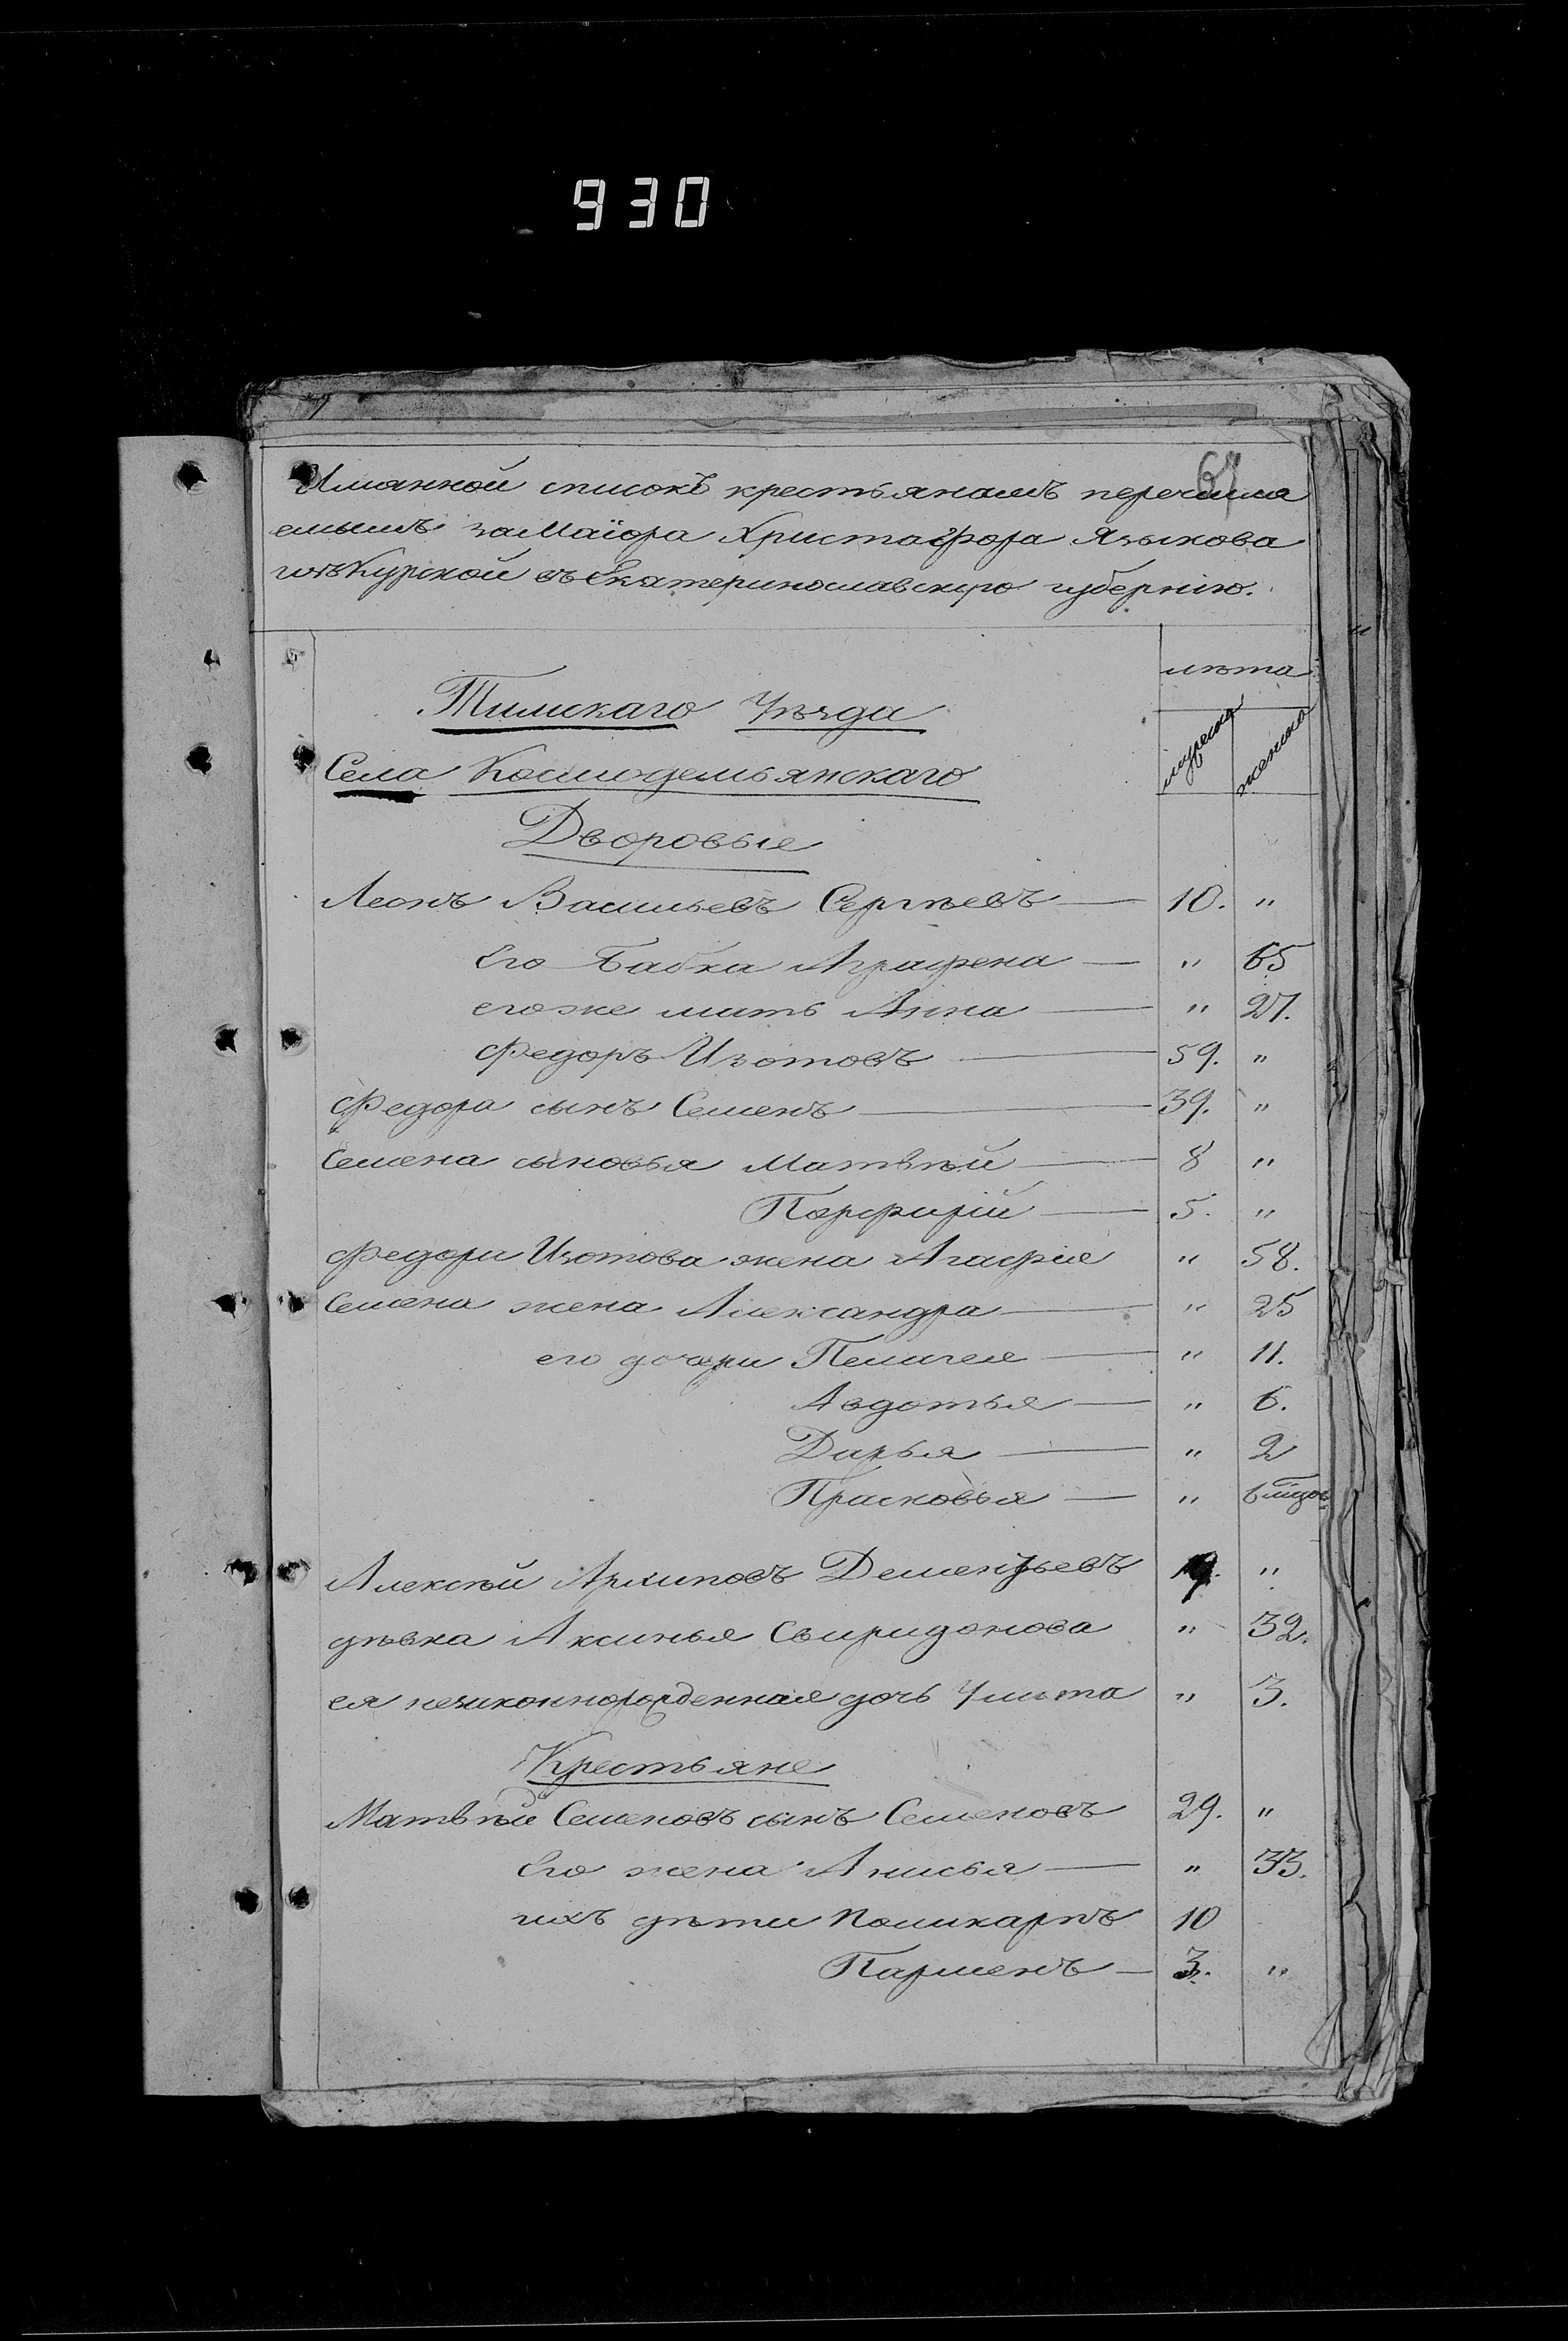 930
67
Имянной списокъ крестьянамъ перечисля
емымъ за Маіора Христофора Языкова
изъ Курской въ Екатеринославскую губернію.
лѣта
Тимскаго Уѣзда
мужска женска
Села Космодемьянскаго
Дворовые
Леонъ Васильевъ Сергѣевъ — 10. "
Его Бабка Аграфена — " 65
егоже мать Анна — " 27.
Федоръ Изотовъ — 59. "
Федора сынъ Семенъ — 39. "
Семена сыновья Матвѣй — 8 "
Порфирій — 5. "
Федора Изотова жена Агафия " 58.
Семена жена Александра — " 25
его дочери Пелагея — " 11.
Авдотья — " 6.
Дарья — " 2
Прасковья — "
Алексѣй Архиповъ Дементьевъ "
дѣвка Аксинья Свиридонова " 32.
ея незаконнорожденная дочь Улита " 3.
Крестьяне
Матвѣй Семеновъ сынъ Семеновъ 29. "
Его жена Анисья — " 33.
ихъ дѣти Поликарпъ 10
Парменъ — 3. "